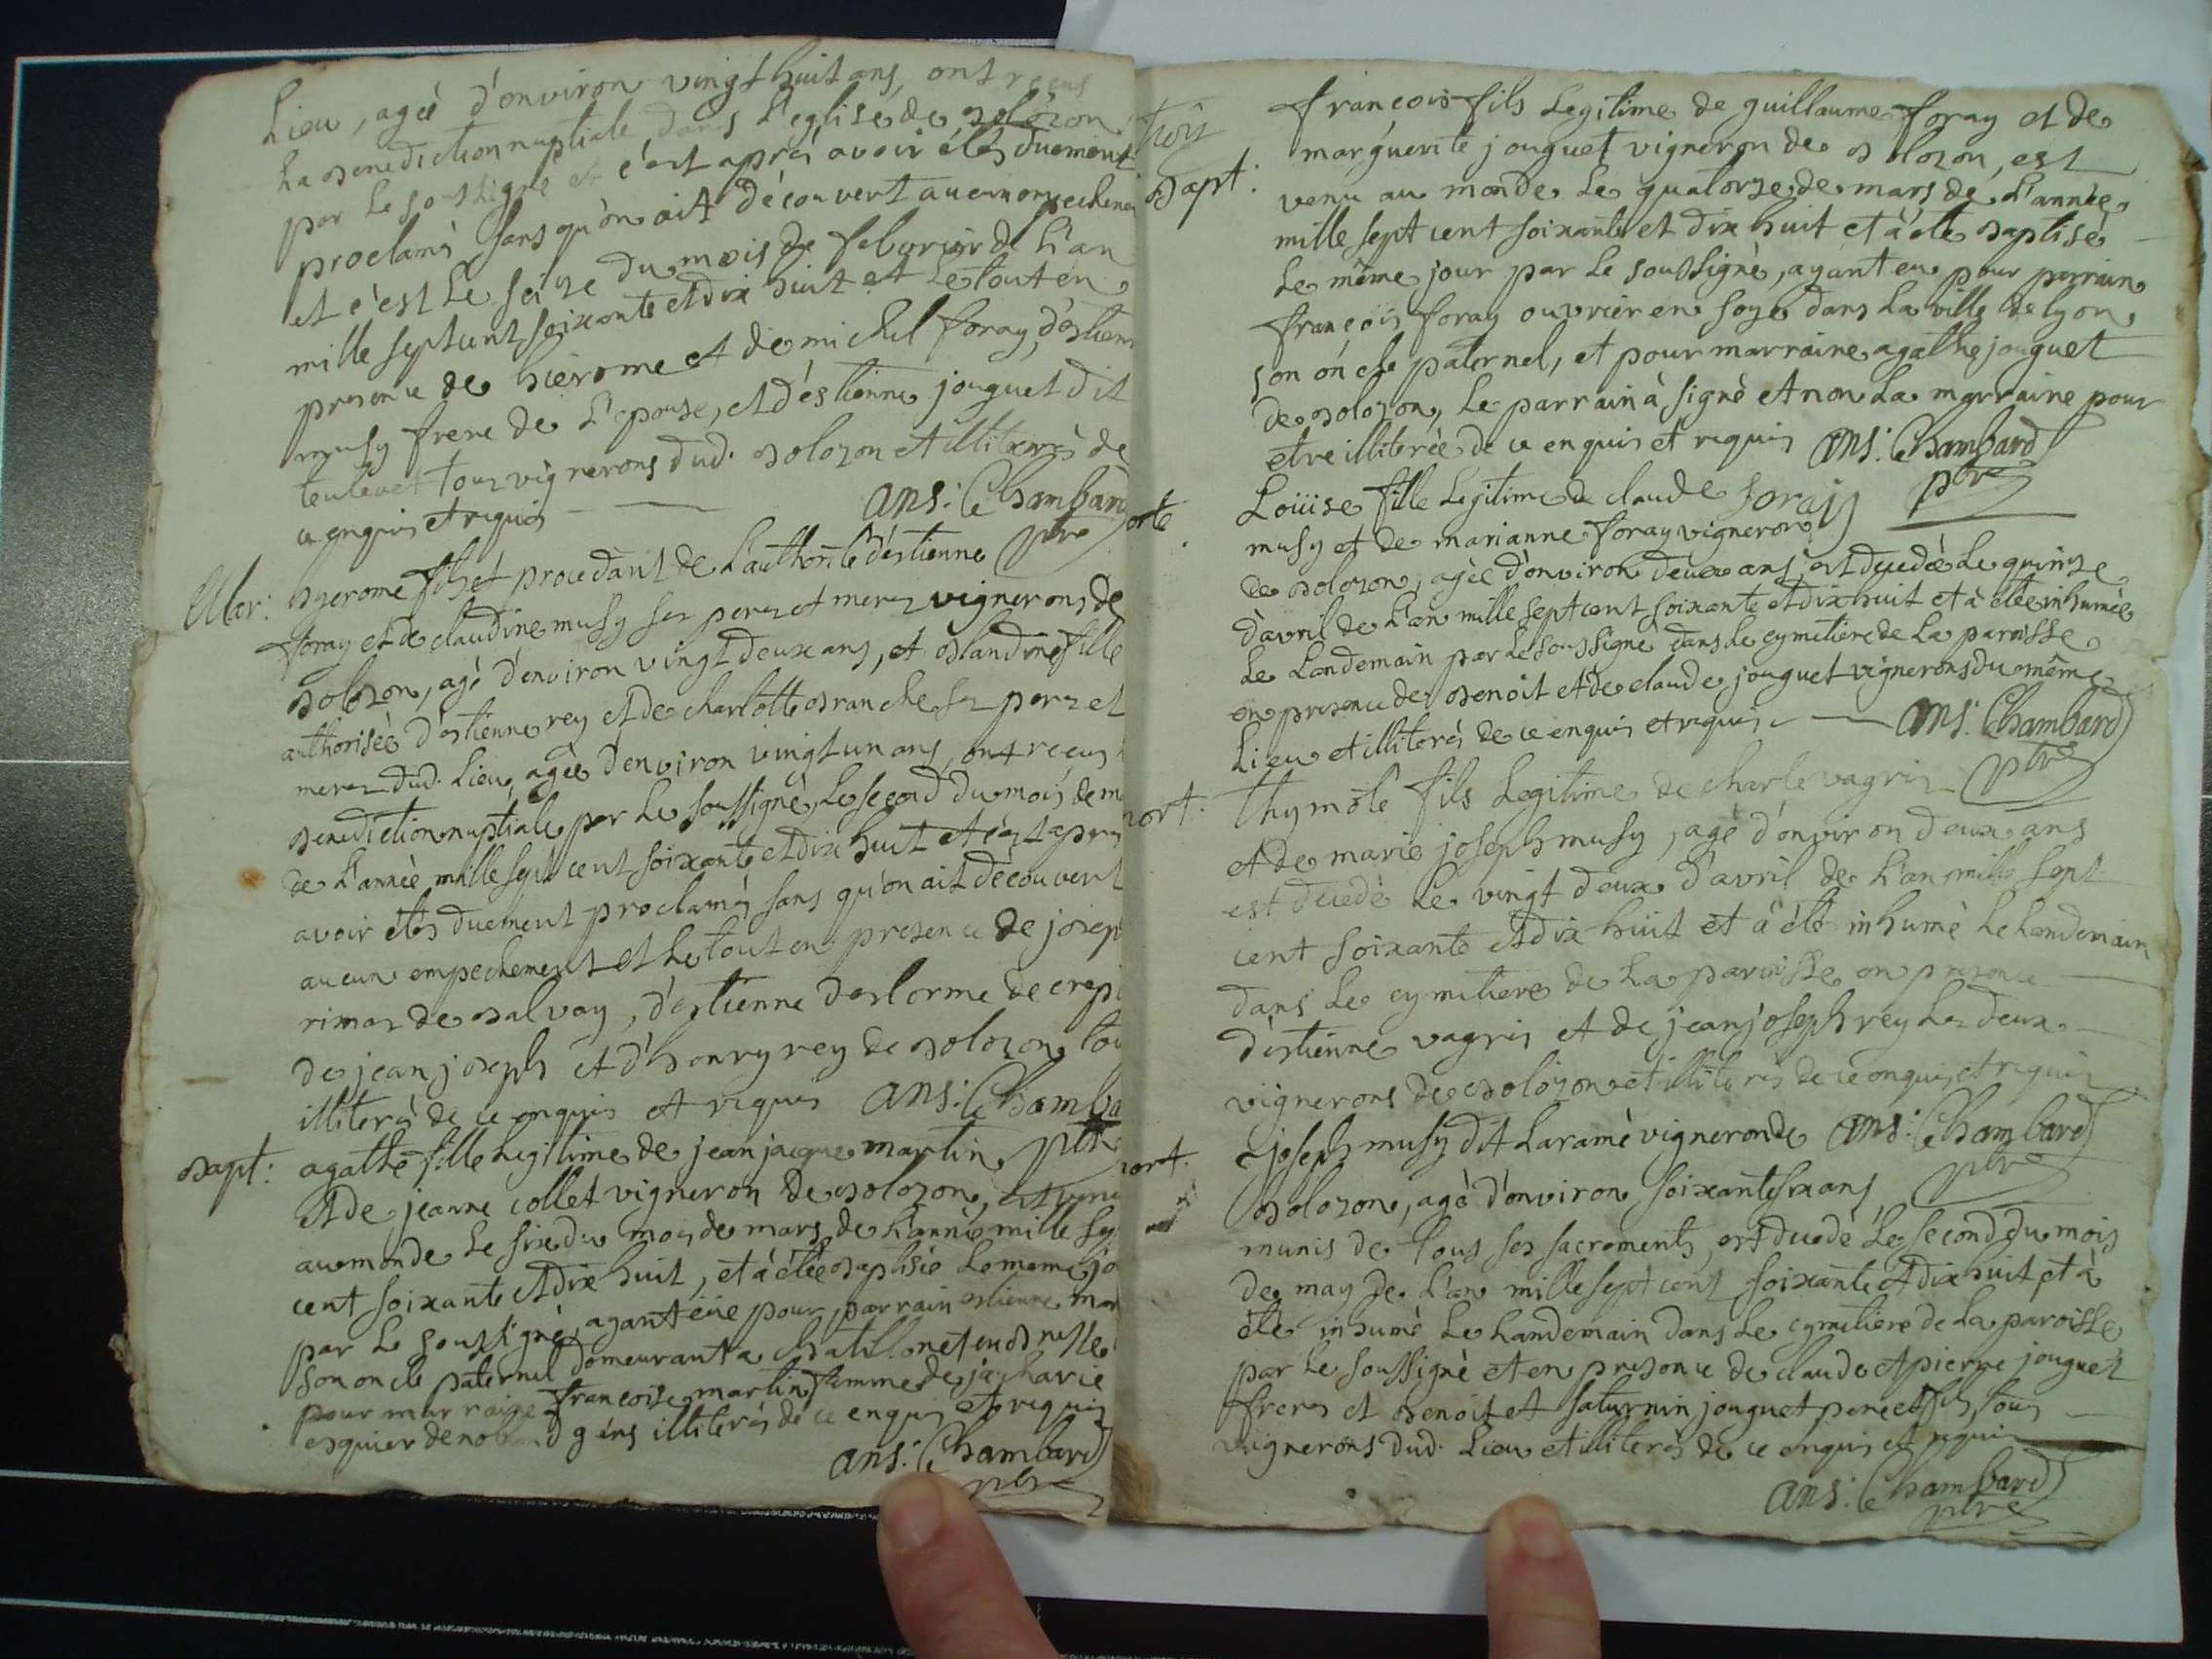 Lieu, ageè d'environ vingt huit ans, ont reçus
La benediction nuptiale dans L'eglise de bolozon
par Le soussignè et c'est aprés avoir étés duement
proclamés sans qu'on ait découvert aucun empechemen
et c'est Le seize du mois de febvrier de L'an
mille sept cent soixante et dix huit et Le tout en
presence de hierome et de michel foray, d'estienne
musy frere de L'epouse, et d'estienne jouguet dit
tous vignerons dud. bolozon et illiterés de
ce enquis et requis
ans: Chambard
ptre
Mar: hyerome fils et procedant de L'authorité d'estienne
foray et de claudine musy ses peres et meres vignerons de
bolozon, agé d'environ vingt deux ans, et blandine fille
authorisée d'estienne rey et de charlotte branche ses peres et
meres dud. Lieu, ageè d'environ vingt un ans, ont reçus
benediction nuptiale par Le soussignè, Le second du mois de m
de L'annèe mille sept cent soixante et dix huit et c'est apres
avoir étés duement proclamés sans qu'on ait découvert
aucun empechement et Le tout en presence de josep
rimoz de balvay, d'estienne deslorme de crepi
de jean joseph et d'henry rey de bolozon tou
illiterés de ce enquis et requis ans: Chamba
ptre
bapt: agathe fille Legitime de jean jacque martin
et de jeanne collet vigneron de bolozon, est venu
au monde Le six du mois de mars de L'année mille se
cent soixante et dix huit, et à étée baptisée Le meme jo
par Le soussignè, ayant eüe pour parrain estienne mar
son oncle paternel demeurant a chatillon et
pour marraine françoise martin femme de jacharie
gens illiterés de ce enquis et requis
ans: Chambard
ptre
trois
bapt: françois fils Legitime de guillaume foray et de
marguerite jouguet vigneron de bolozon, est
venu au monde Le quatorze de mars de L'année
mille sept cent soixante et dix huit et à été baptisé
Le même jour par Le soussignè, ayant eu pour parrain
françois foray ouvrier en soye dans La ville de lyon
son oncle paternel, et pour marraine agathe jouguet
de bolozon, Le parrain à signè et non La marraine pour
etre illiterée de ce enquis et requis ans: Chambard
ptre
foray
orte. Loüise fille Legitime de claude
musy et de marianne foray vigneron
de bolozon, agée d'environ deux ans est decedée Le quinze
d'avril de L'an mille sept cent soixante et dix huit et à étée inhumée
Le Landemain par Le soussignè dans Le cymetiere de La paroisse
en presence de benoit et de claude jouguet vignerons du même
Lieu et illiterés de ce enquis et requis ans: Chambard
ptre
ort. thymote fils Legitime de charle vagris
et de marie joseph musy, agé d'environ deux ans
est decedé Le vingt deux d'avril de L'an mille sept
cent soixante et dix huit et à été inhumè Le Landemain
dans Le cymetiere de La paroisse en presence
d'estienne vagris et de jean joseph rey Les deux
vignerons de bolozon et illiterés de ce enquis et requis
ans: Chambard
ptre
ort. joseph musy dit Laramè vigneron de
bolozon, agé d'environ soixante six ans,
munis de tous ses sacrements, est decedè Le second du mois
de may de L'an mille sept cent soixante et dix huit et à
été inhumè Le Landemain dans Le cymetiere de La paroisse
par Le soussignè et en presence de claude et pierre jouguet
freres et benoit et saturnin jouguet pere et fils, tous
vignerons dud. Lieu et illiterés de ce enquis et requis
ans: Chambard
ptre